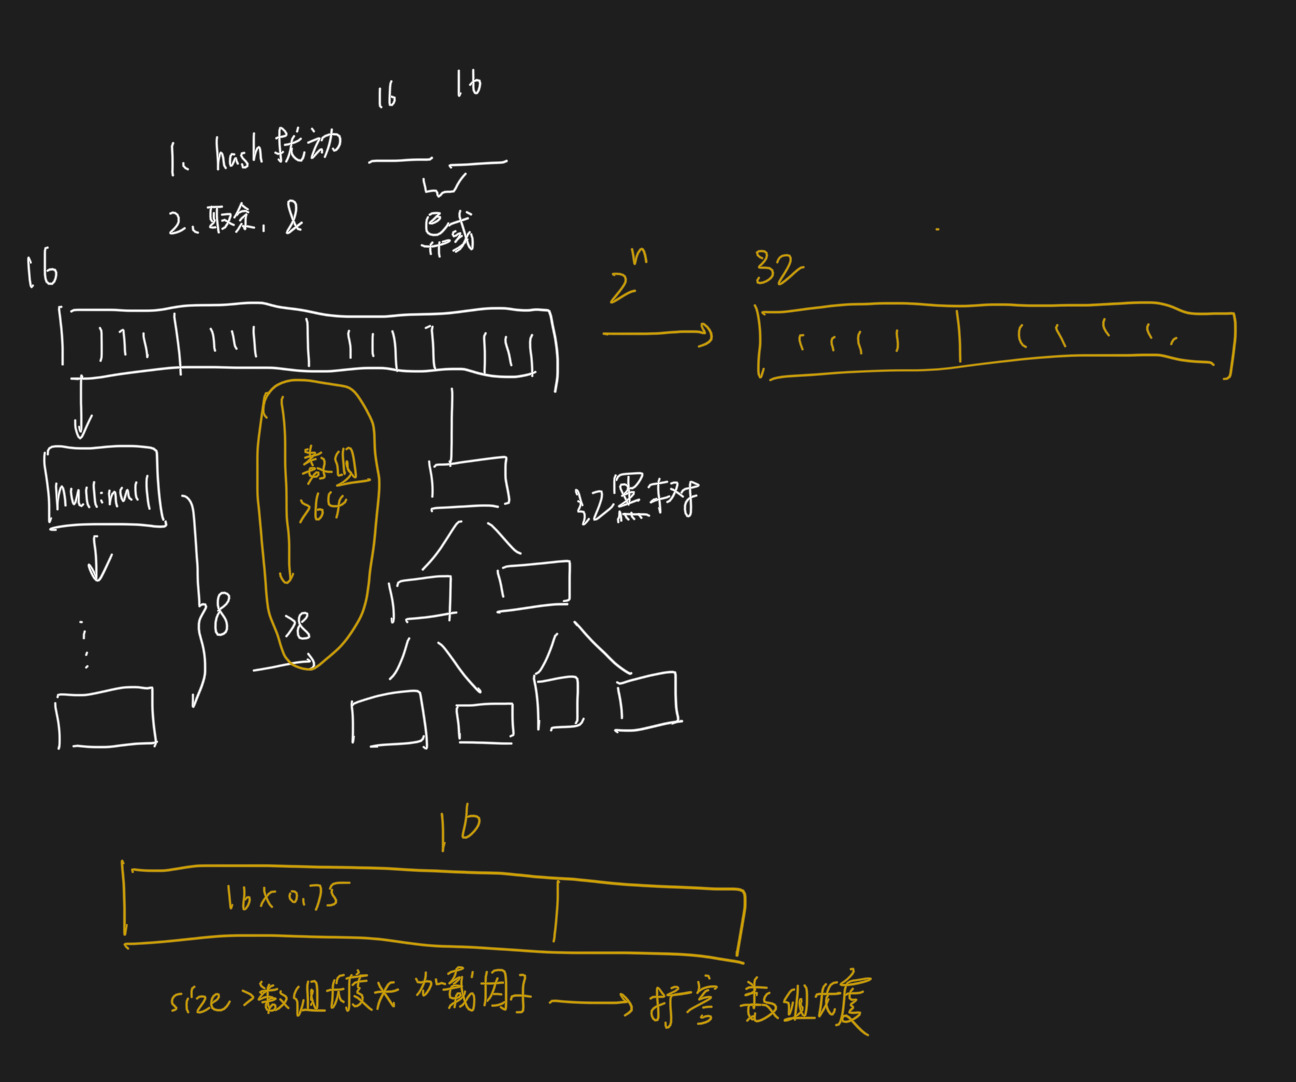 16 16
1、hash扰动
2、取余、&
异或
16
2ⁿ
32
null:null
8
数组
>64
>8
红黑树
16
16×0.75
size>数组长度* 加载因子
扩容 数组长度